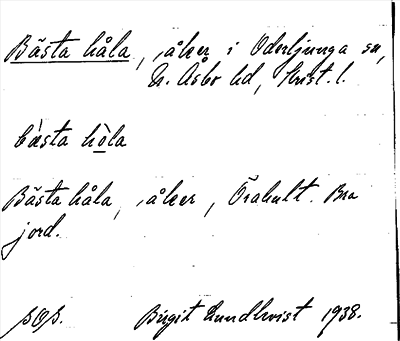 Bästa håla, åker i Oderljunga sn,
N. Åsbo hd, Krist. l.
bæ̀sta hòla
Bästa håla, åker, Örahult. Bra
jord.
Birgit Lundkvist 1938.